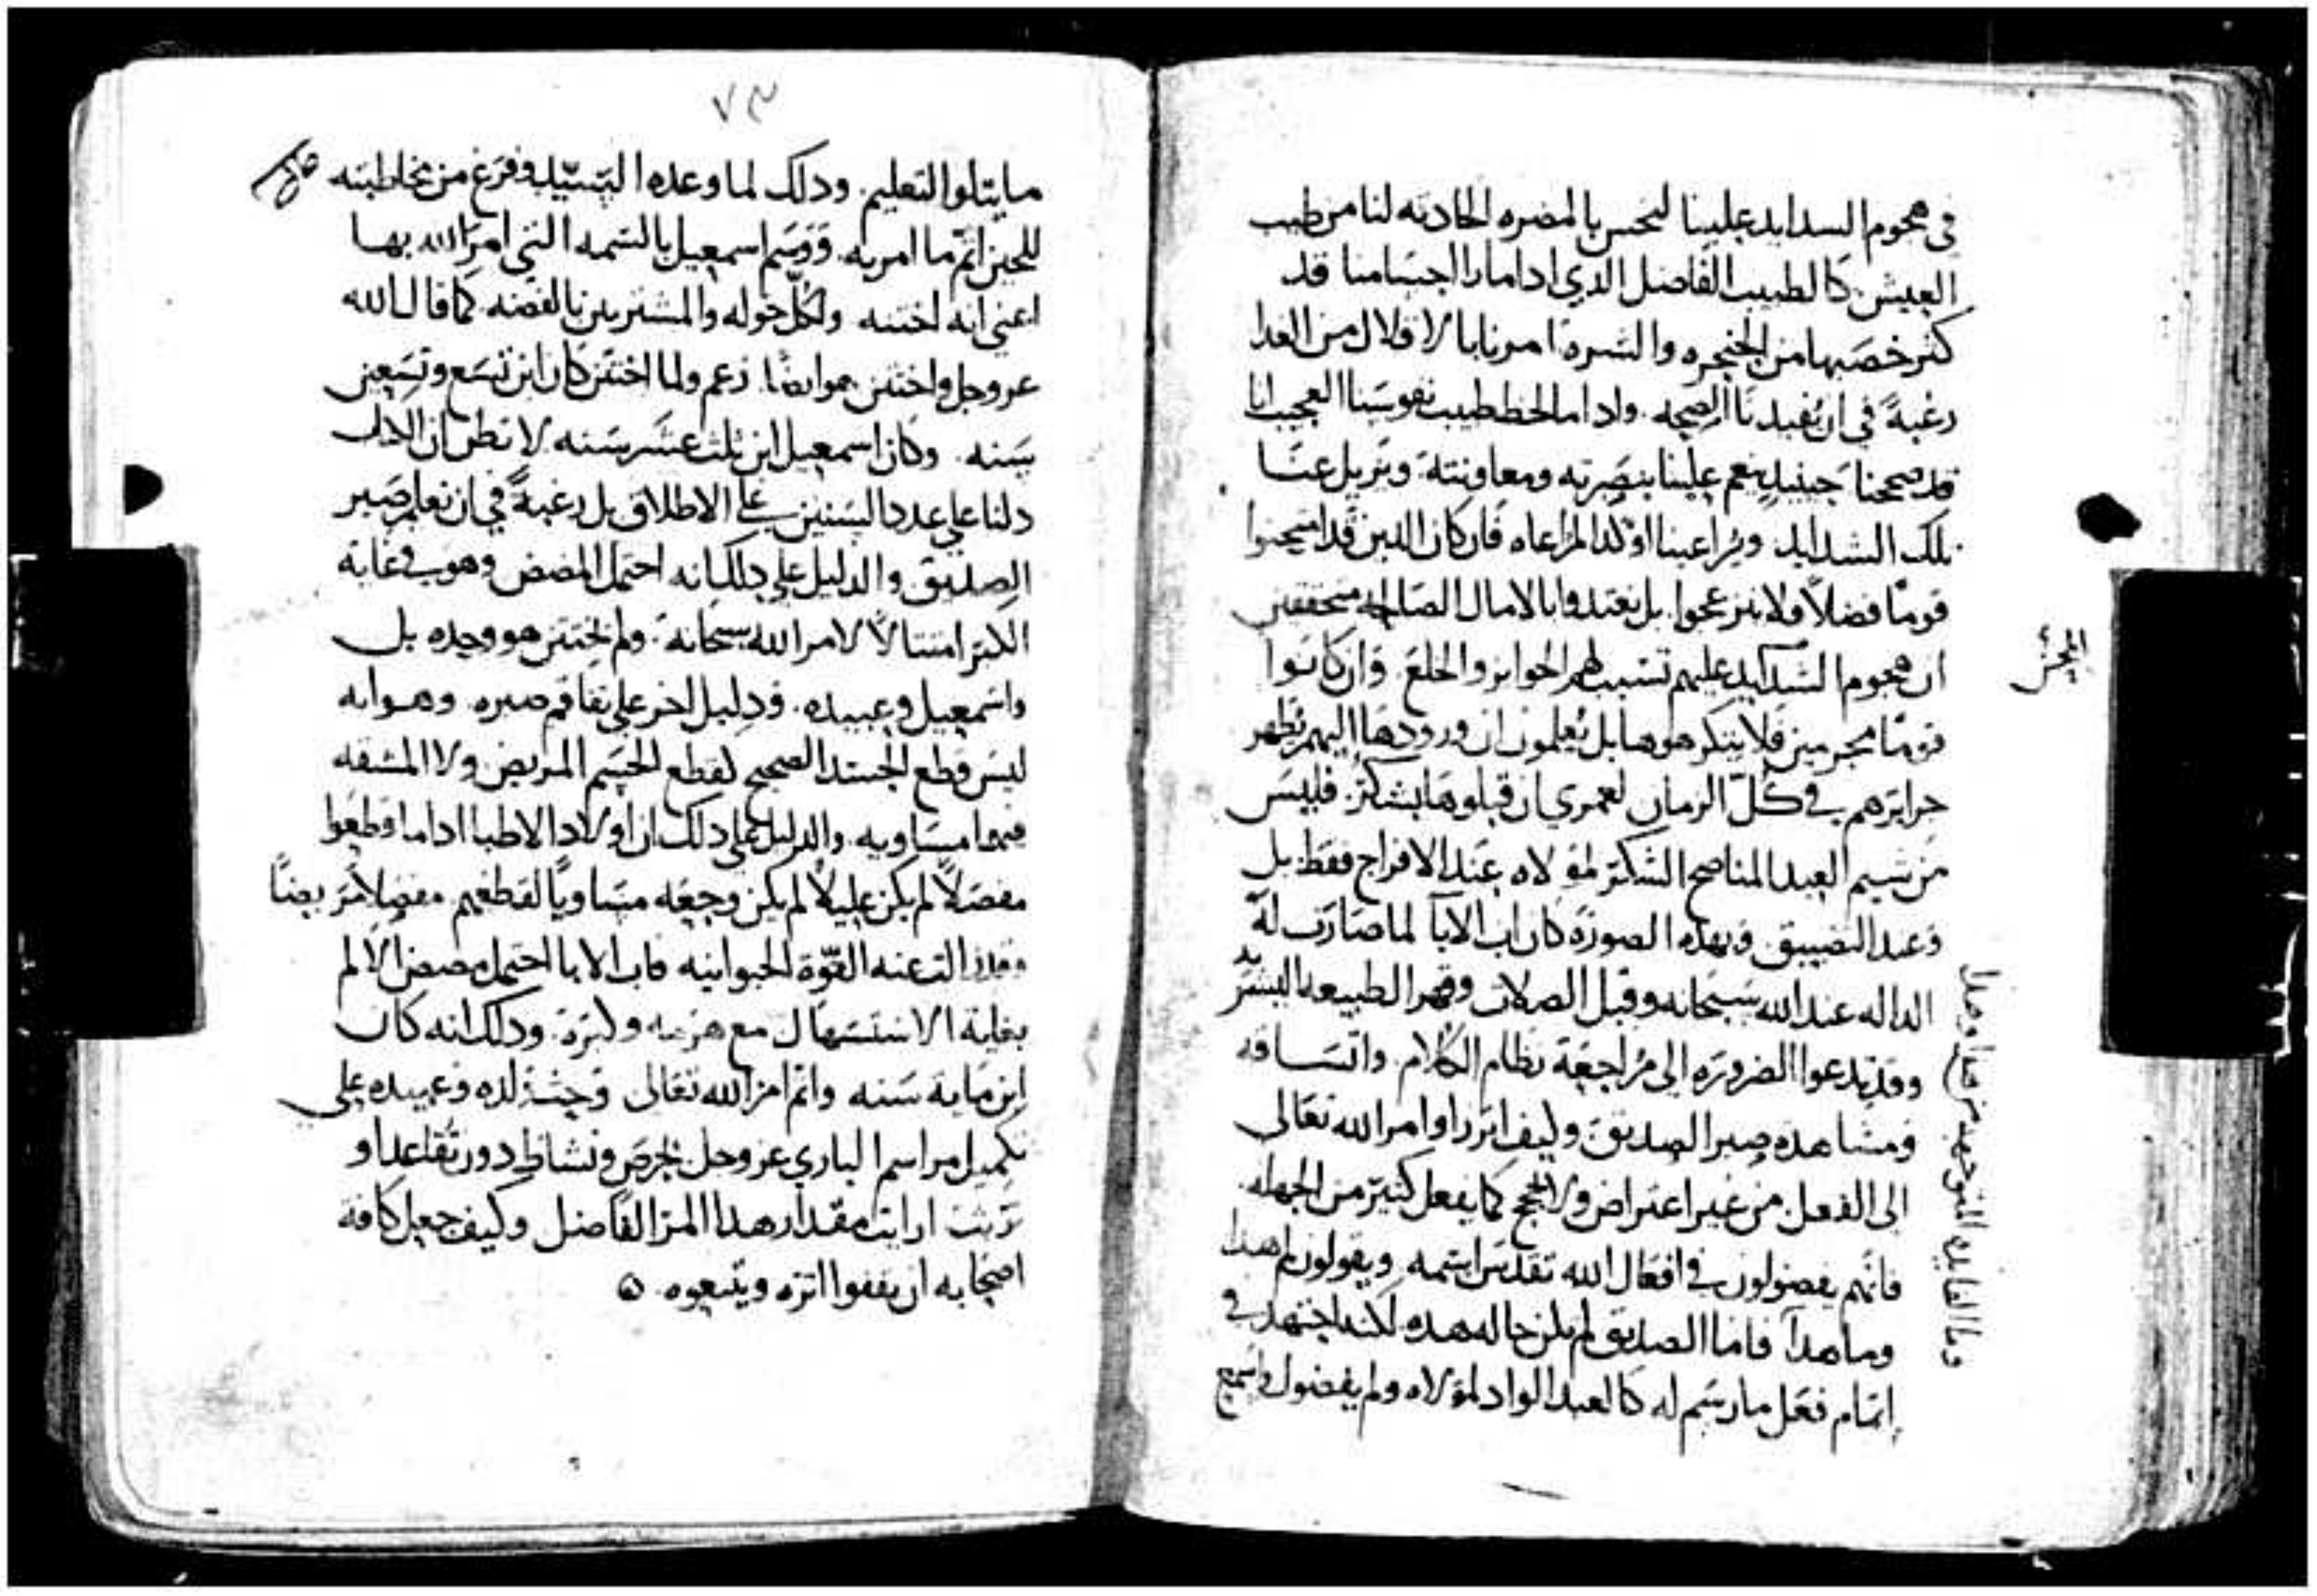 في هجوم السدايد علينا لنحس بالمضره الحادثه لنا من طيب
العيش. كالطبيب الفاضل الدي ادا ما را اجسامنا قد
كثر خصبها من الحنجره والشره امرنا بالاقلال من الغدا
رغبةً في ان يفيدنا الصحه. وادا ما لحظ طبيب نفوسنا العجيب انا
قد صححنا حينيدٍ ينعم علينا بنصرته ومعاونته. ويزيل عنا
تلك الشدايد ويراعينا اوكد المراعاه فان كان الدين قد امتحنوا
قومًا فضلاً فلا ينزعجوا بل يغتدوا بالامال الصالحه متحققين
ان هجوم الشدايد عليهم تسبب لهم الجوايز والخلع وان كانوا
قومًا مجرمين فلا يتكرهوها بل يعلمون ان ورودها اليهم يطهر
جرايرهم في كلّ الزمان لعمري ان قبلوها بشكر. فليس
من شيم العبد المناصح الشكر لمولاه عند الافراج فقط بل
وعند التضييق وبهده الصورة كان اب الابا لما صارت له
الداله عند الله سبحانه وقبل الصلات وقهر الطبيعه البشريه
وقد تدعوا الضروره الى مراجعة نظام الكلام. واتساقه
ومشاهده صبر الصديق وكيف ابرز اوامر الله تعالى
الى الفعل من غير اعتراض ولا كما يفعل كثير من الجهله
فانهم يفضولون في افعال الله تقدس اسمه ويقولون لم هدا
وما هدا فاما الصديق لم يكن حاله هده لكنه اجتهد في
اتمام فعل ما رسم له كالعبد الواد لمولاه ولم يفضول واسمع
٧٣
ما يتلوا التعليم. ودلك لما وعده السيد وفرغ من مخاطبته
للحين اتم ما امر به. ووسم اسمعيل بالسمه التي امر الله بها
اعني انه اختنه وكلّ خوله والمشترين بالفضه كما قال الله
عز وجل واختتن هو ايضًا. زعم ولما اختتن كان ابن تسع وتسعين
سنه. وكان اسمعيل ابن ثلث عشر سنه لا تظن ان الكتاب
دلنا على عدد السنين على الاطلاق بل رغبةً في ان نعلم صبر
الصديق والدليل على دلك انه احتمل المضض وهو في غاية
الكبر امتثالاً لامر الله سبحانه. ولم يختتن هو وحده بل
واسمعيل وعبيده. ودليل اخر على تفاقم صبره وهو انه
ليس قطع الجسد الصحيح كقطع الجسم المريض ولا المشقه
فيهما مساويه والدليل على دلك ان اولاد الاطبا ادا ما قطعوا
مفصلاً لم يكن عليلاً لم يكن وجعه مساويًا لقطعهم مفصلاً مريضًا
وقد زالت عنه القوّة الحيوانيه فاب الابا احتمل مضض الالم
بغاية الاستسهال مع هرمه وكبره. ودلك انه كان
ابن ماية سنه واتم امر الله تعالى وحث ولده وعبيده على
تكميل مراسم الباري عز وجل بحرص ونشاط دون تقاعد او
تريث ارايت مقدار هدا المر الفاضل وكيف جعل كافة
اصحابه ان يقفوا اثره ويتبعوه.